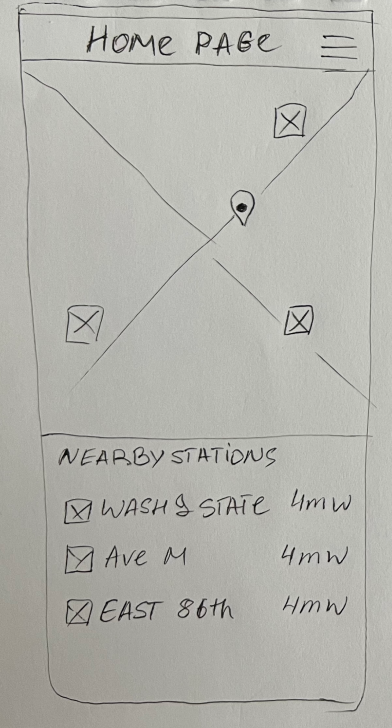 HOME PAGE
NEARBY STATIONS
WASH & STATE 4mW
Ave M 4mW
EAST 86th 4mW